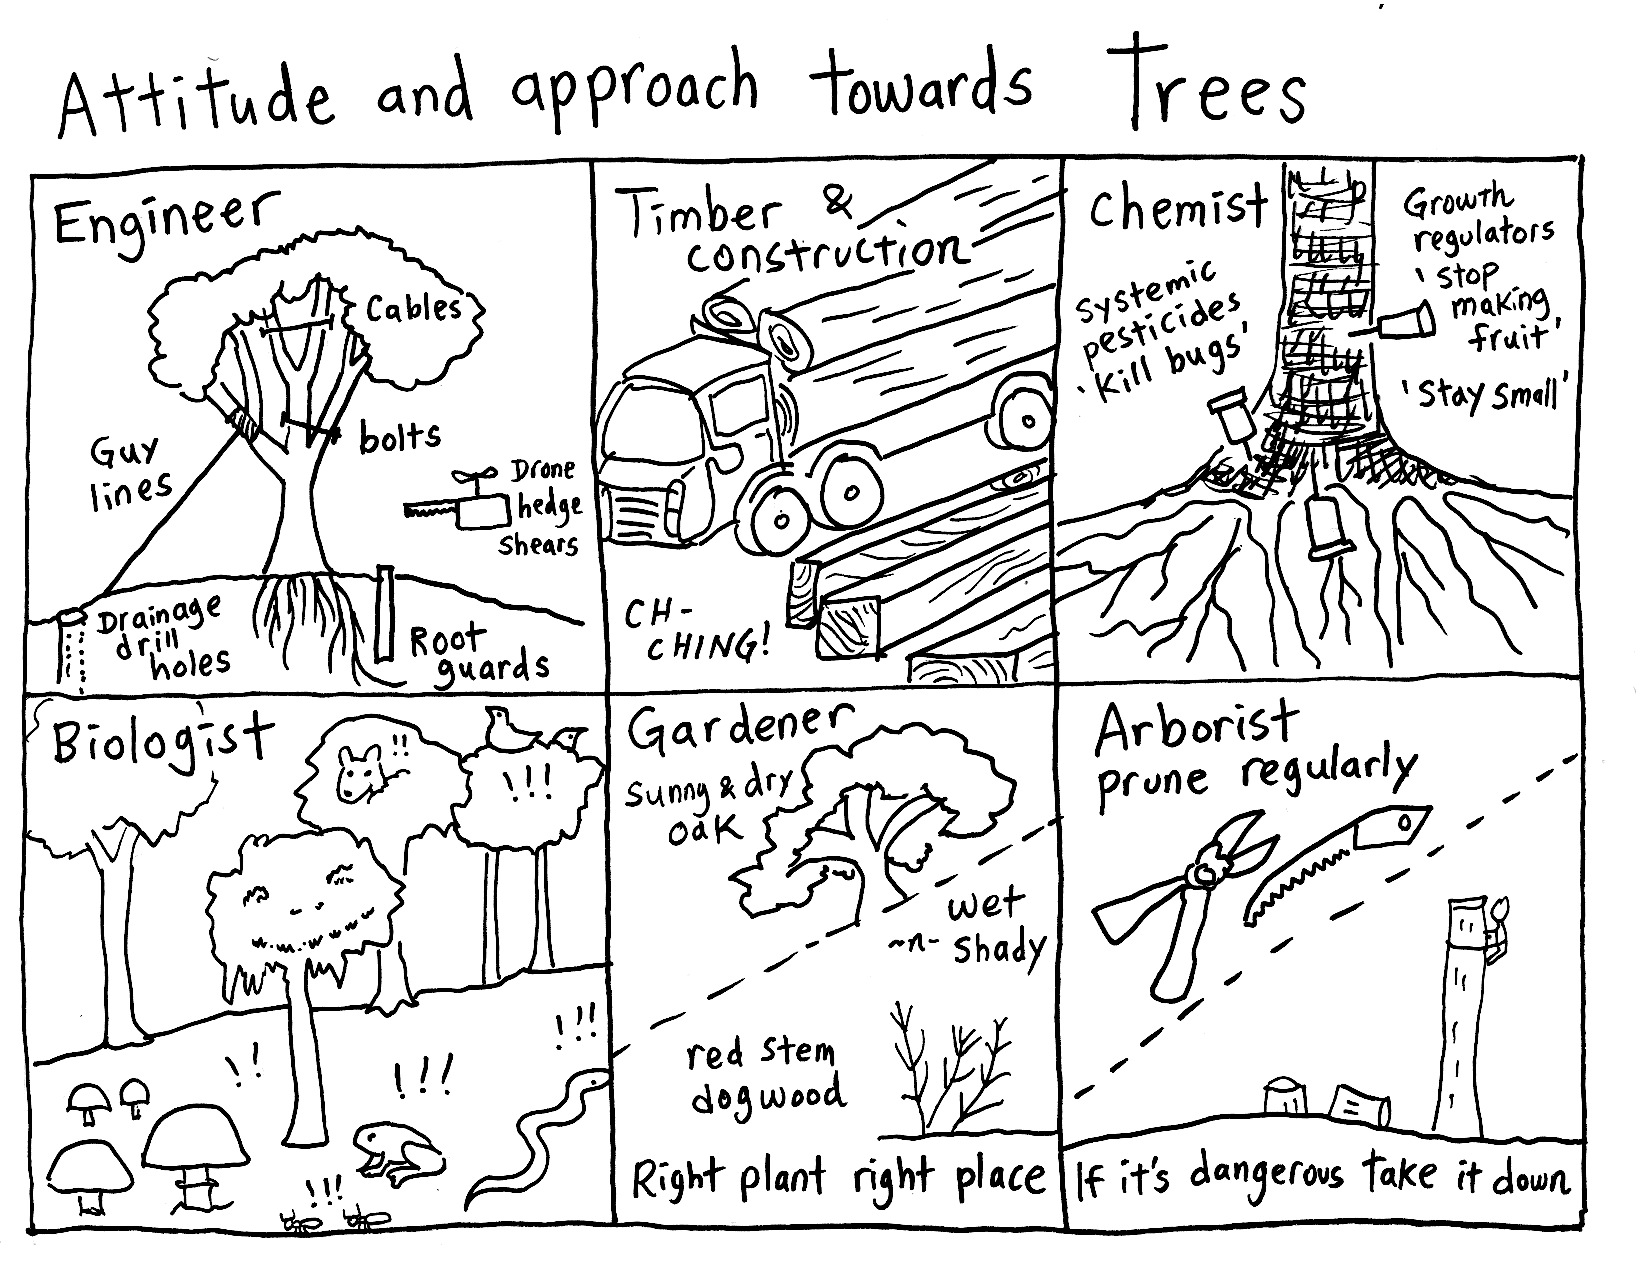 Attitude and approach towards Trees
Engineer
Cables
bolts
Guy
lines
Drone
hedge
shears
Drainage
drill
holes
Root
guards
Timber &
construction
CH-
CHING!
Chemist
Systemic
pesticides
'Kill bugs'
Growth
regulators
'stop
making
fruit'
'Stay small'
Biologist
!!
!!!
!!
!!!
!!!
!!!
Gardener
sunny & dry
oak
wet
~n~
shady
red stem
dogwood
Right plant right place
Arborist
prune regularly
If it's dangerous take it down